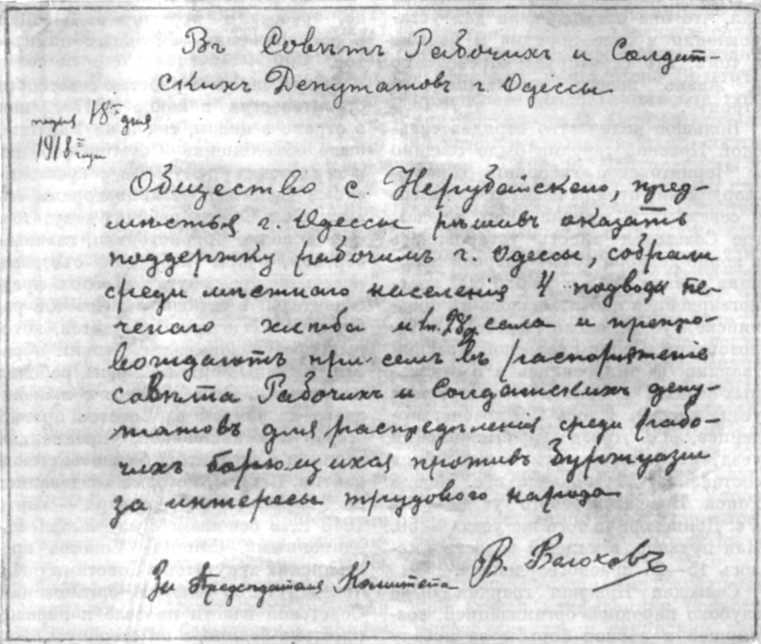 Въ Советъ Рабочихъ и Солдат-
скихъ Депутатовъ г. Одессы
18 дня
1918 года
Общество с. Нерубайского, пред-
мѣстья г. Одессы рѣшивъ оказать
поддержку рабочимъ г. Одессы, собрали
среди мѣстного населенія 4 подводы пе-
ченого хлѣба и сала и препро-
вождаютъ при семъ въ распоряженіе
савѣта Рабочихъ и Солдатскихъ депу-
татовъ для распредѣленія среди рабо-
чихъ борющихся противъ буржуазии
за интересы трудового народа
За Председателя Комитета В.